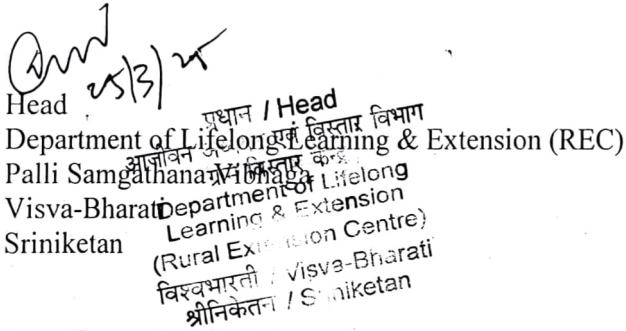 25/3/25
Head
Department of Lifelong Learning & Extension (REC)
Palli Samgathana Vibhaga
Visva-Bharati
Sriniketan
प्रधान / Head
आजीवन एवं विस्तार विभाग
विस्तार केन्द्र
Department of Lifelong
Learning & Extension
(Rural Extension Centre)
विश्वभारती / Visva-Bharati
श्रीनिकेतन / Sriniketan